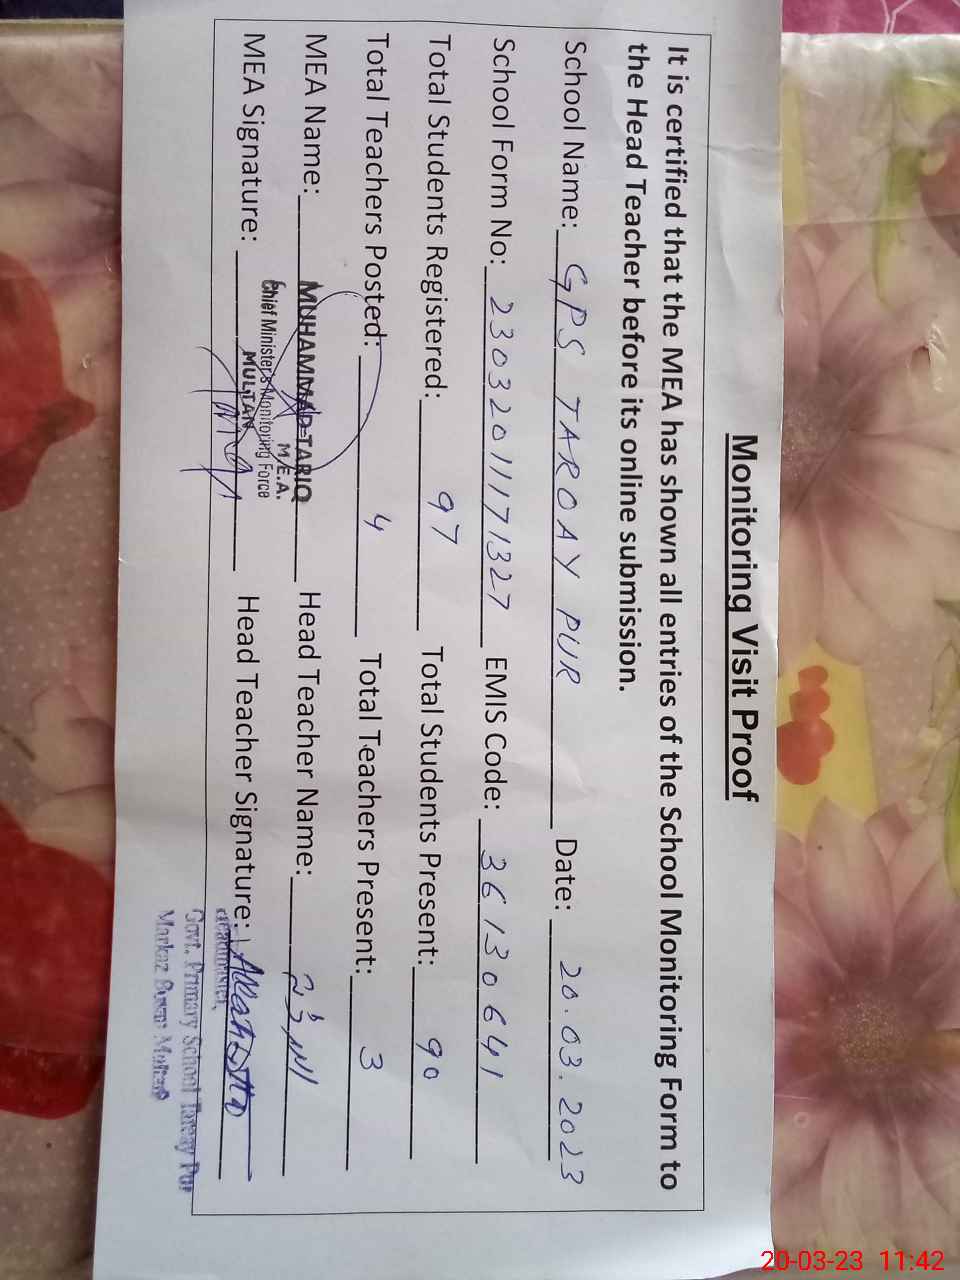 Monitoring Visit Proof
It is certified that the MEA has shown all entries of the School Monitoring Form to
the Head Teacher before its online submission.
School Name: GPS TAROAY PUR Date: 20.03.2023
School Form No: 2303201171327 EMIS Code: 36130641
Total Students Registered: 97 Total Students Present: 90
Total Teachers Posted: 4 Total Teachers Present: 3
MEA Name: MUHAMMAD TARIQ Head Teacher Name: اللہ دتہ
M.E.A.
Chief Minister's Monitoring Force
MULTAN
MEA Signature: Head Teacher Signature: Allah Ditta
Headmaster,
Govt. Primary School Taroay Pur
Markaz Bosan Multan
20-03-23 11:42